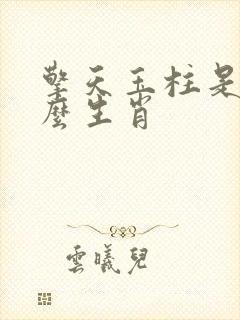 擎天玉柱是
麼生肖
雲曦兒